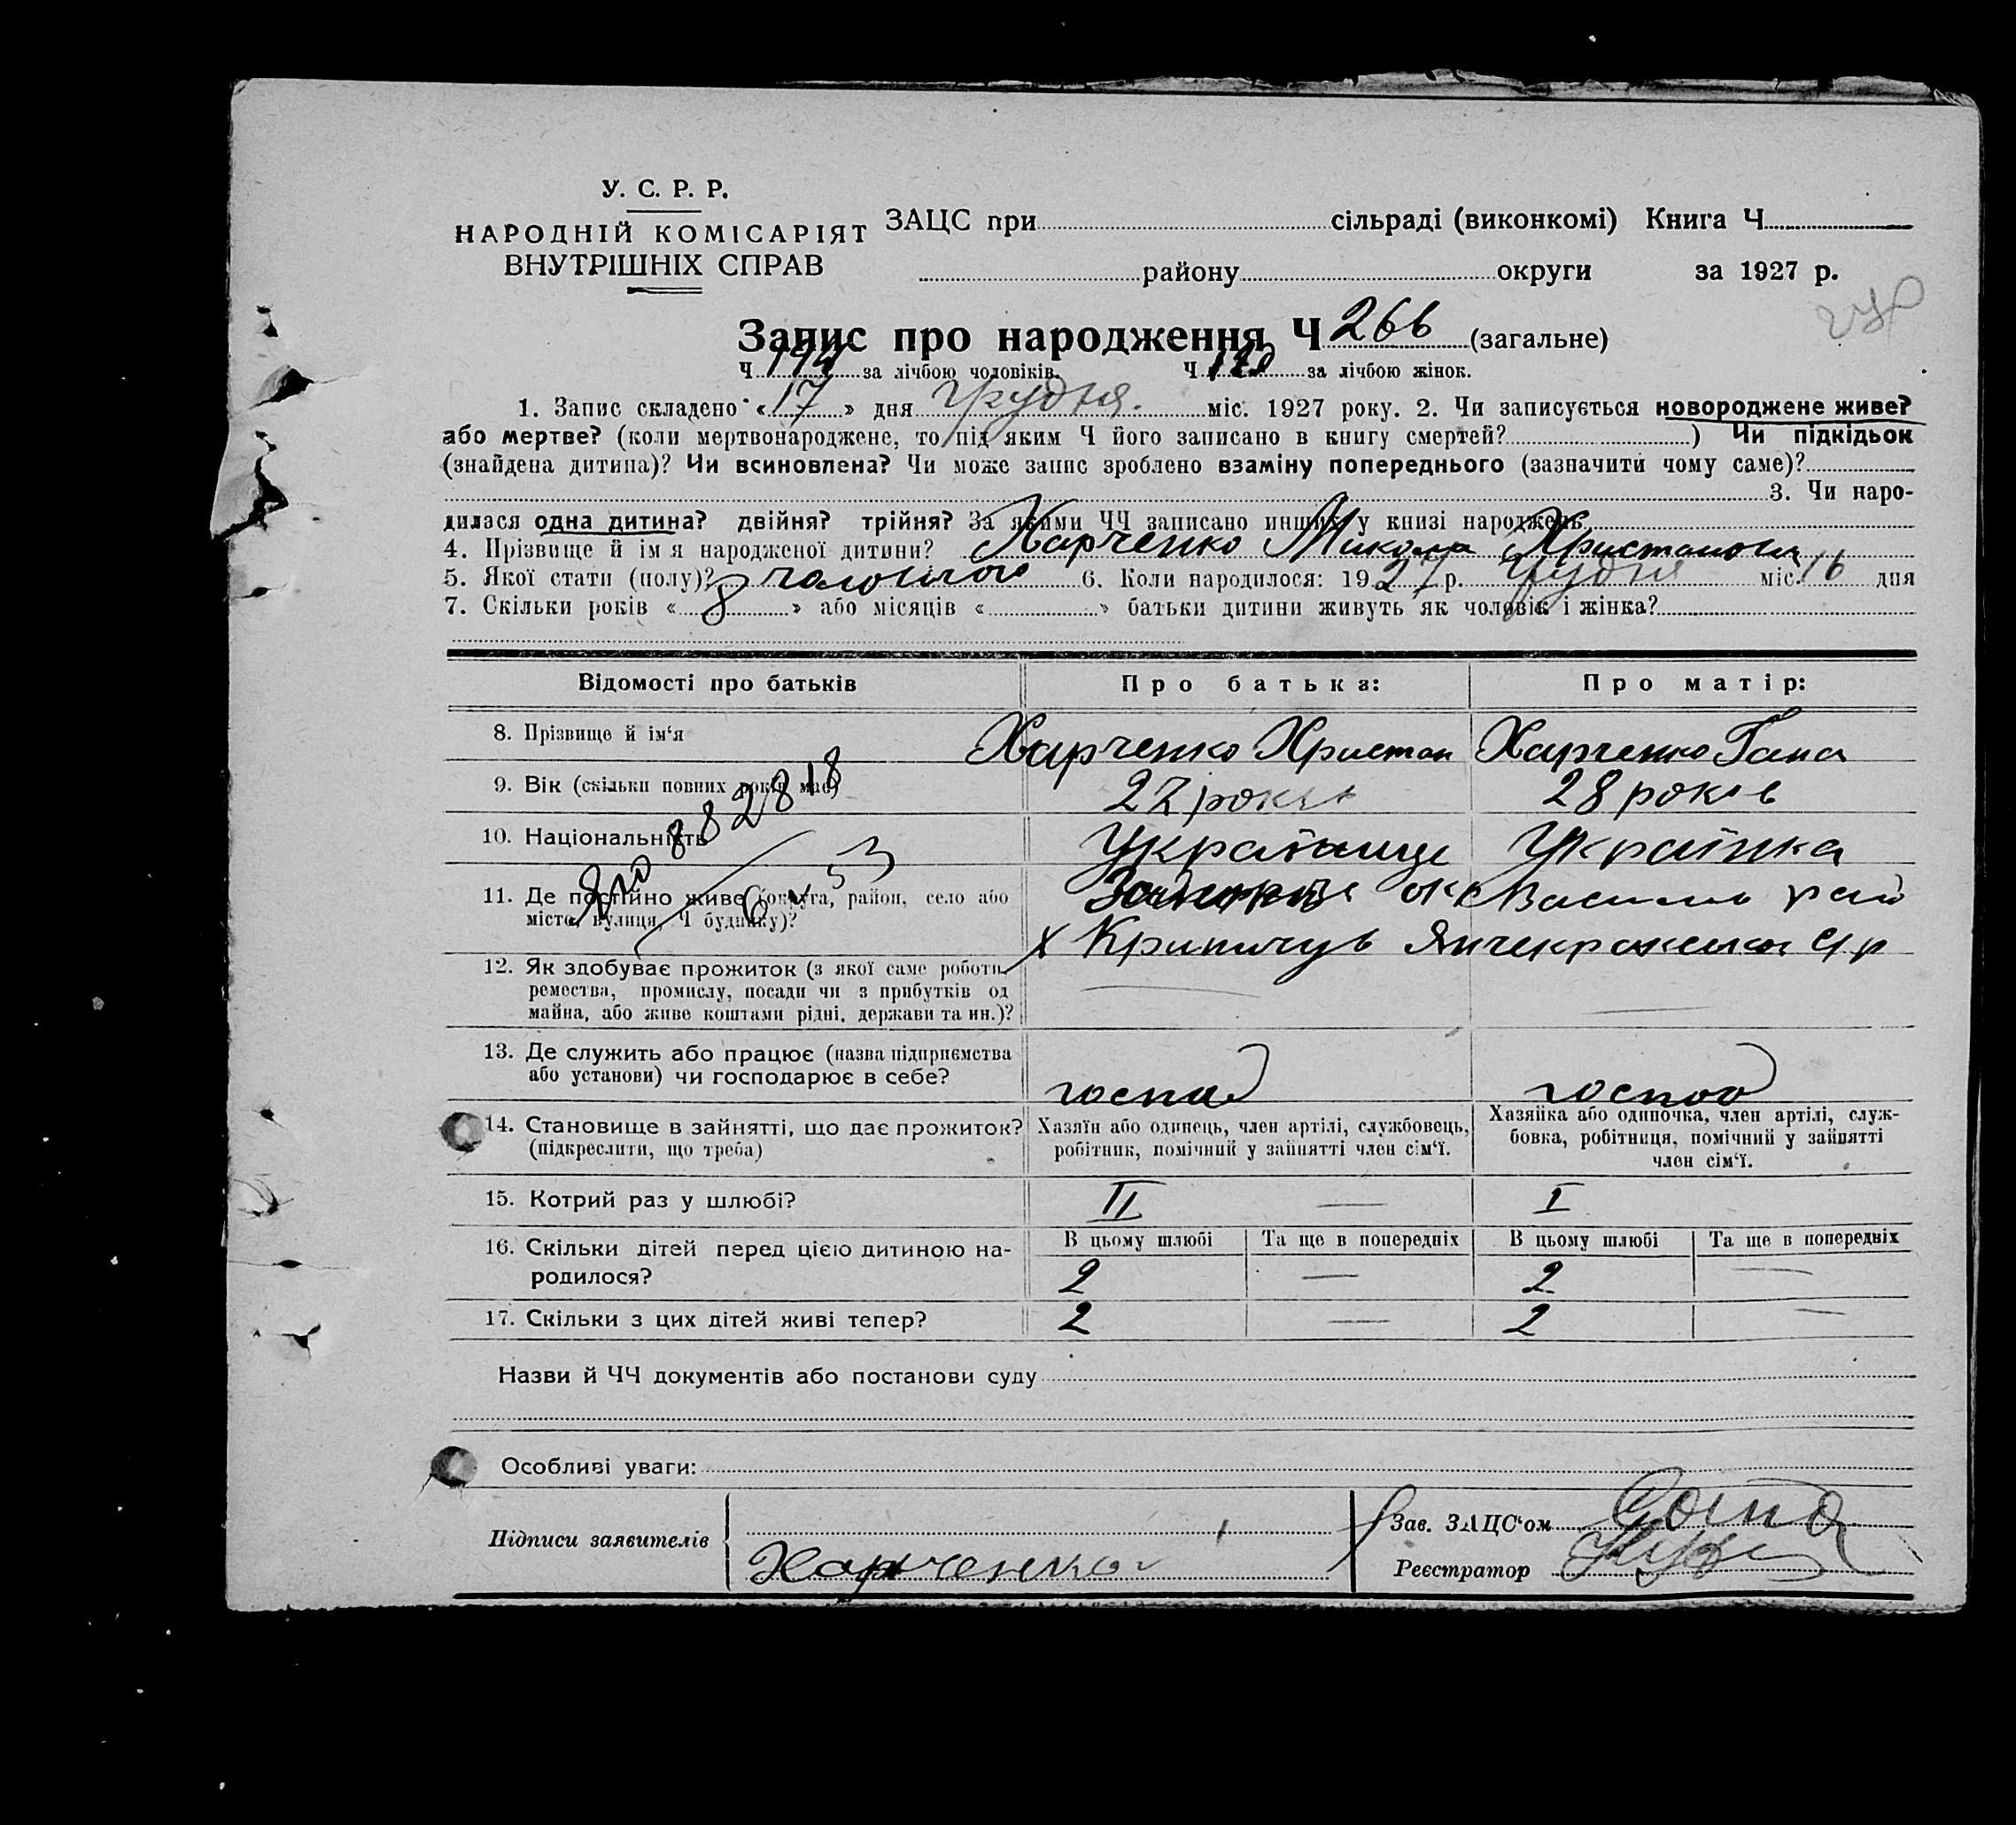 У. С. Р. Р.
НАРОДНІЙ КОМІСАРІЯТ
ВНУТРІШНІХ СПРАВ
ЗАЦС при сільраді (виконкомі) Книга Ч
району округи за 1927 р.
Запис про народження Ч 266 (загальне)
Ч за лічбою чоловіків. Ч за лічбою жінок.
1. Запис складено «17» дня грудня. міс. 1927 року. 2. Чи записується новороджене живе?
або мертве? (коли мертвонароджене, то під яким Ч його записано в книгу смертей? ) Чи підкідьок
(знайдена дитина)? Чи всиновлена? Чи може запис зроблено взаміну попереднього (зазначити чому саме)?
3. Чи наро-
дилася одна дитина? двійня? трійня? За якими ЧЧ записано инших у книзі народжень
4. Прізвище й ім я народженої дитини? Харченко Микола Христанович
5. Якої стати (полу)? 6. Коли народилося: 1927 р. грудня міс. 16 дня
7. Скільки років «8» або місяців « » батьки дитини живуть як чоловік і жінка?
Відомості про батьків Про батька: Про матір:
8. Прізвище й ім‘я Харченко Христан Харченко Гана
9. Вік (скільки повних років має) 27 років 28 років
882818
10. Національність Українце Українка
53
11. Де постійно живе (округа, район, село або Василів рай
місто, вулиця, Ч будинку)? х Криничув Янчекракська с/р
12. Як здобуває прожиток (з якої саме роботи,
ремества, промислу, посади чи з прибутків од
майна, або живе коштами рідні, держави та ин.)?
13. Де служить або працює (назва підприємства
або установи) чи господарює в себе? господ господ
14. Становище в зайнятті, що дає прожиток? Хазяїн або одинець, член артілі, службовець, Хазяйка або одиночка, член артілі, служ-
(підкреслити, що треба) робітник, помічний у зайнятті член сім‘ї. бовка, робітниця, помічний у зайнятті
член сім‘ї.
15. Котрий раз у шлюбі? II — I
16. Скільки дітей перед цією дитиною на- В цьому шлюбі Та ще в попередніх В цьому шлюбі Та ще в попередніх
родилося? 2 — 2 —
17. Скільки з цих дітей живі тепер? 2 — 2 —
Назви й ЧЧ документів або постанови суду
Особливі уваги:
Зав. ЗАЦС‘ом
Підписи заявителів Харченко
Реєстратор